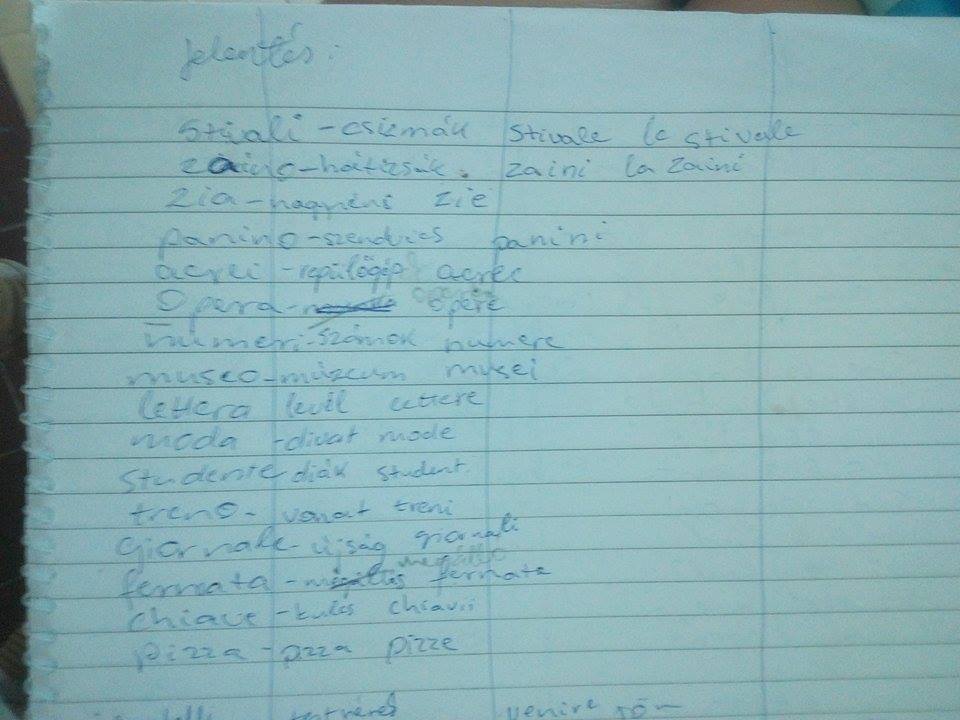 Jelentés:
stivali - csizmák stivale le stivale
zaino - hátizsák. zaini la zaini
zia - nagynéni zie
panino - szendvics panini
aerei - repülőgép aeree
Opera - opere
numeri - számok numere
museo - múzeum musei
lettera levél lettere
moda - divat mode
studente diák student
treno - vonat treni
giornale - újság giornali
fermata - megálló fermate
chiave - kulcs chiavii
pizza - pizza pizze
venire jön